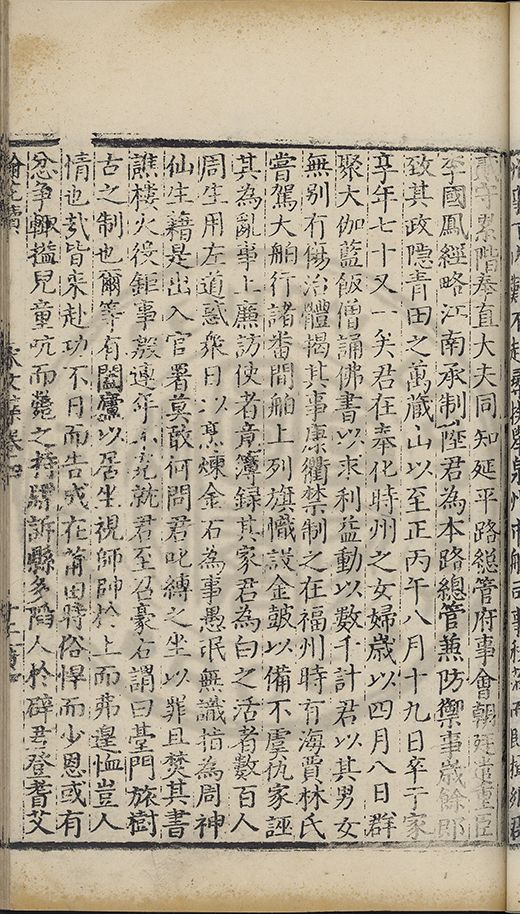 直大夫同知延平路總管府事會朝廷遣重臣
李國鳳經略江南承制陞君為本路總管兼防禦事歲餘即
致其政隱青田之萬歲山以至正丙午八月十九日卒于家
享年七十又一矣君在奉化時州之女婦歲以四月八日群
聚大伽藍飯僧誦佛書以求利益動以數千計君以其男女
無別有傷治體揭其事康衢禁制之在福州時有海賈林氏
嘗駕大舶行諸番間舶上列旗幟設金鼓以備不虞仇家誣
其為亂事上廉訪使者竟簿錄其家君為白之活者數百人
周生用左道惑衆日以烹煉金石為事愚氓無識指為周神
仙生籍是出入官署莫敢何問君叱縛之坐以罪且焚其書
譙樓火役鉅事叢連年不就君至召豪右謂曰臺門旅樹
古之制也爾等有閎廬以居坐視師帥於上而弗遑恤豈人
情也哉皆来赴功不日而告成在莆田時俗悍而少恩或有
忿争輒搤兒童吭而斃之訴縣多陷人於辟君登耆艾